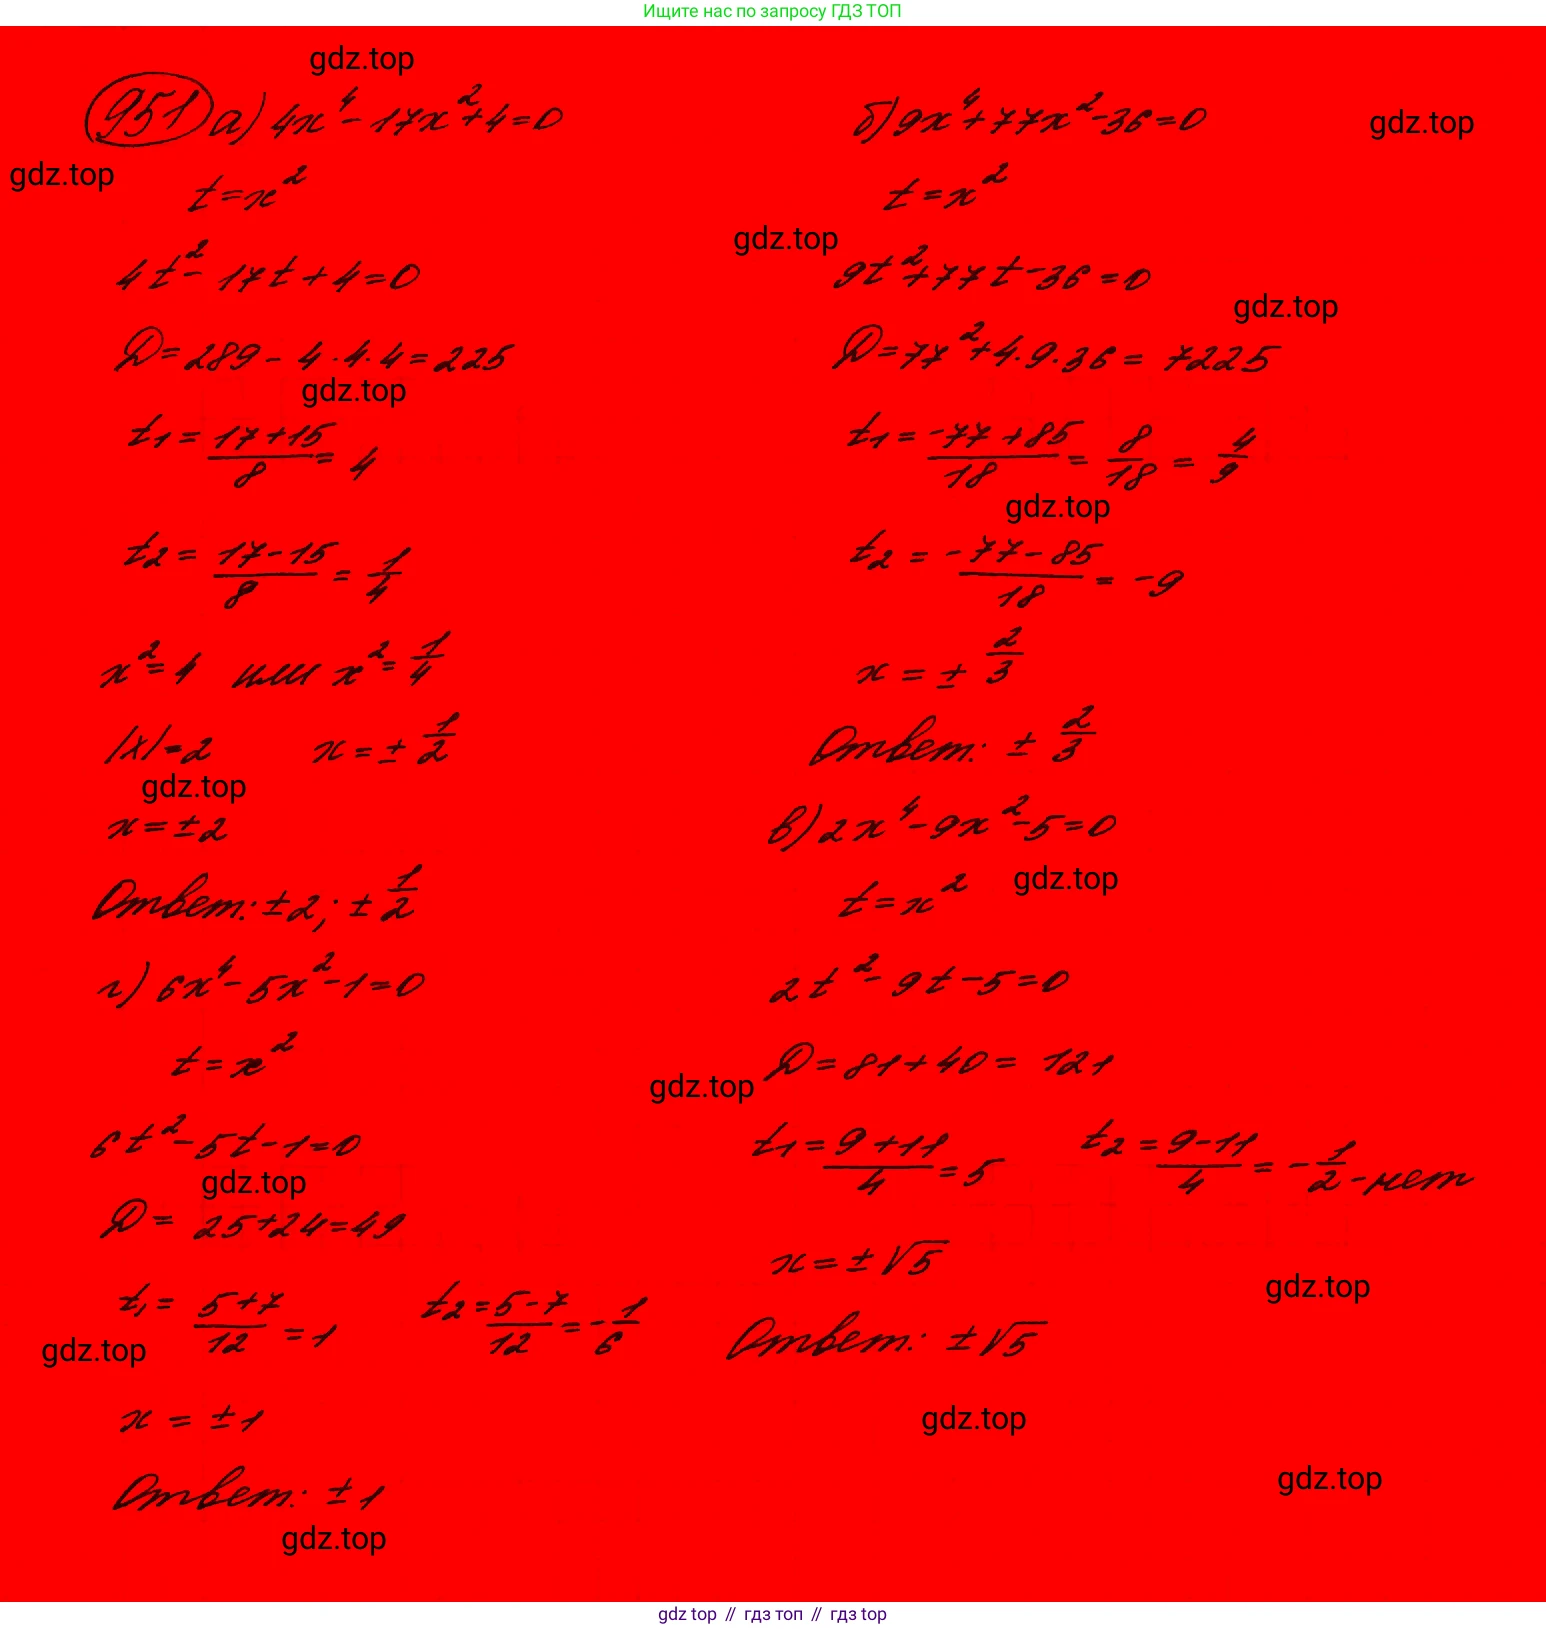 Ищите нас по запросу ГДЗ ТОП
gdz.top
951 а) 4x⁴ - 17x² + 4 = 0
gdz.top
t = x²
4t² - 17t + 4 = 0
D = 289 - 4 · 4 · 4 = 225
gdz.top
t₁ = (17+15)/8 = 4
t₂ = (17-15)/8 = 1/4
x² = 4 или x² = 1/4
|x| = 2 x = ± 1/2
gdz.top
x = ±2
Ответ: ±2; ± 1/2
г) 6x⁴ - 5x² - 1 = 0
t = x²
6t² - 5t - 1 = 0
gdz.top
D = 25+24=49
t₁ = (5+7)/12 = 1 t₂ = (5-7)/12 = -1/6
gdz.top
x = ±1
Ответ: ±1
gdz.top
б) 9x⁴ + 77x² - 36 = 0
gdz.top
t = x²
gdz.top
9t² + 77t - 36 = 0
gdz.top
D = 77² + 4 · 9 · 36 = 7225
t₁ = (-77+85)/18 = 8/18 = 4/9
gdz.top
t₂ = (-77-85)/18 = -9
x = ± 2/3
Ответ: ± 2/3
в) 2x⁴ - 9x² - 5 = 0
gdz.top
t = x²
2t² - 9t - 5 = 0
D = 81 + 40 = 121
gdz.top
t₁ = (9+11)/4 = 5 t₂ = (9-11)/4 = -1/2 - нет
x = ±√5
gdz.top
Ответ: ±√5
gdz.top
gdz.top
gdz top // гдз топ // гдз top